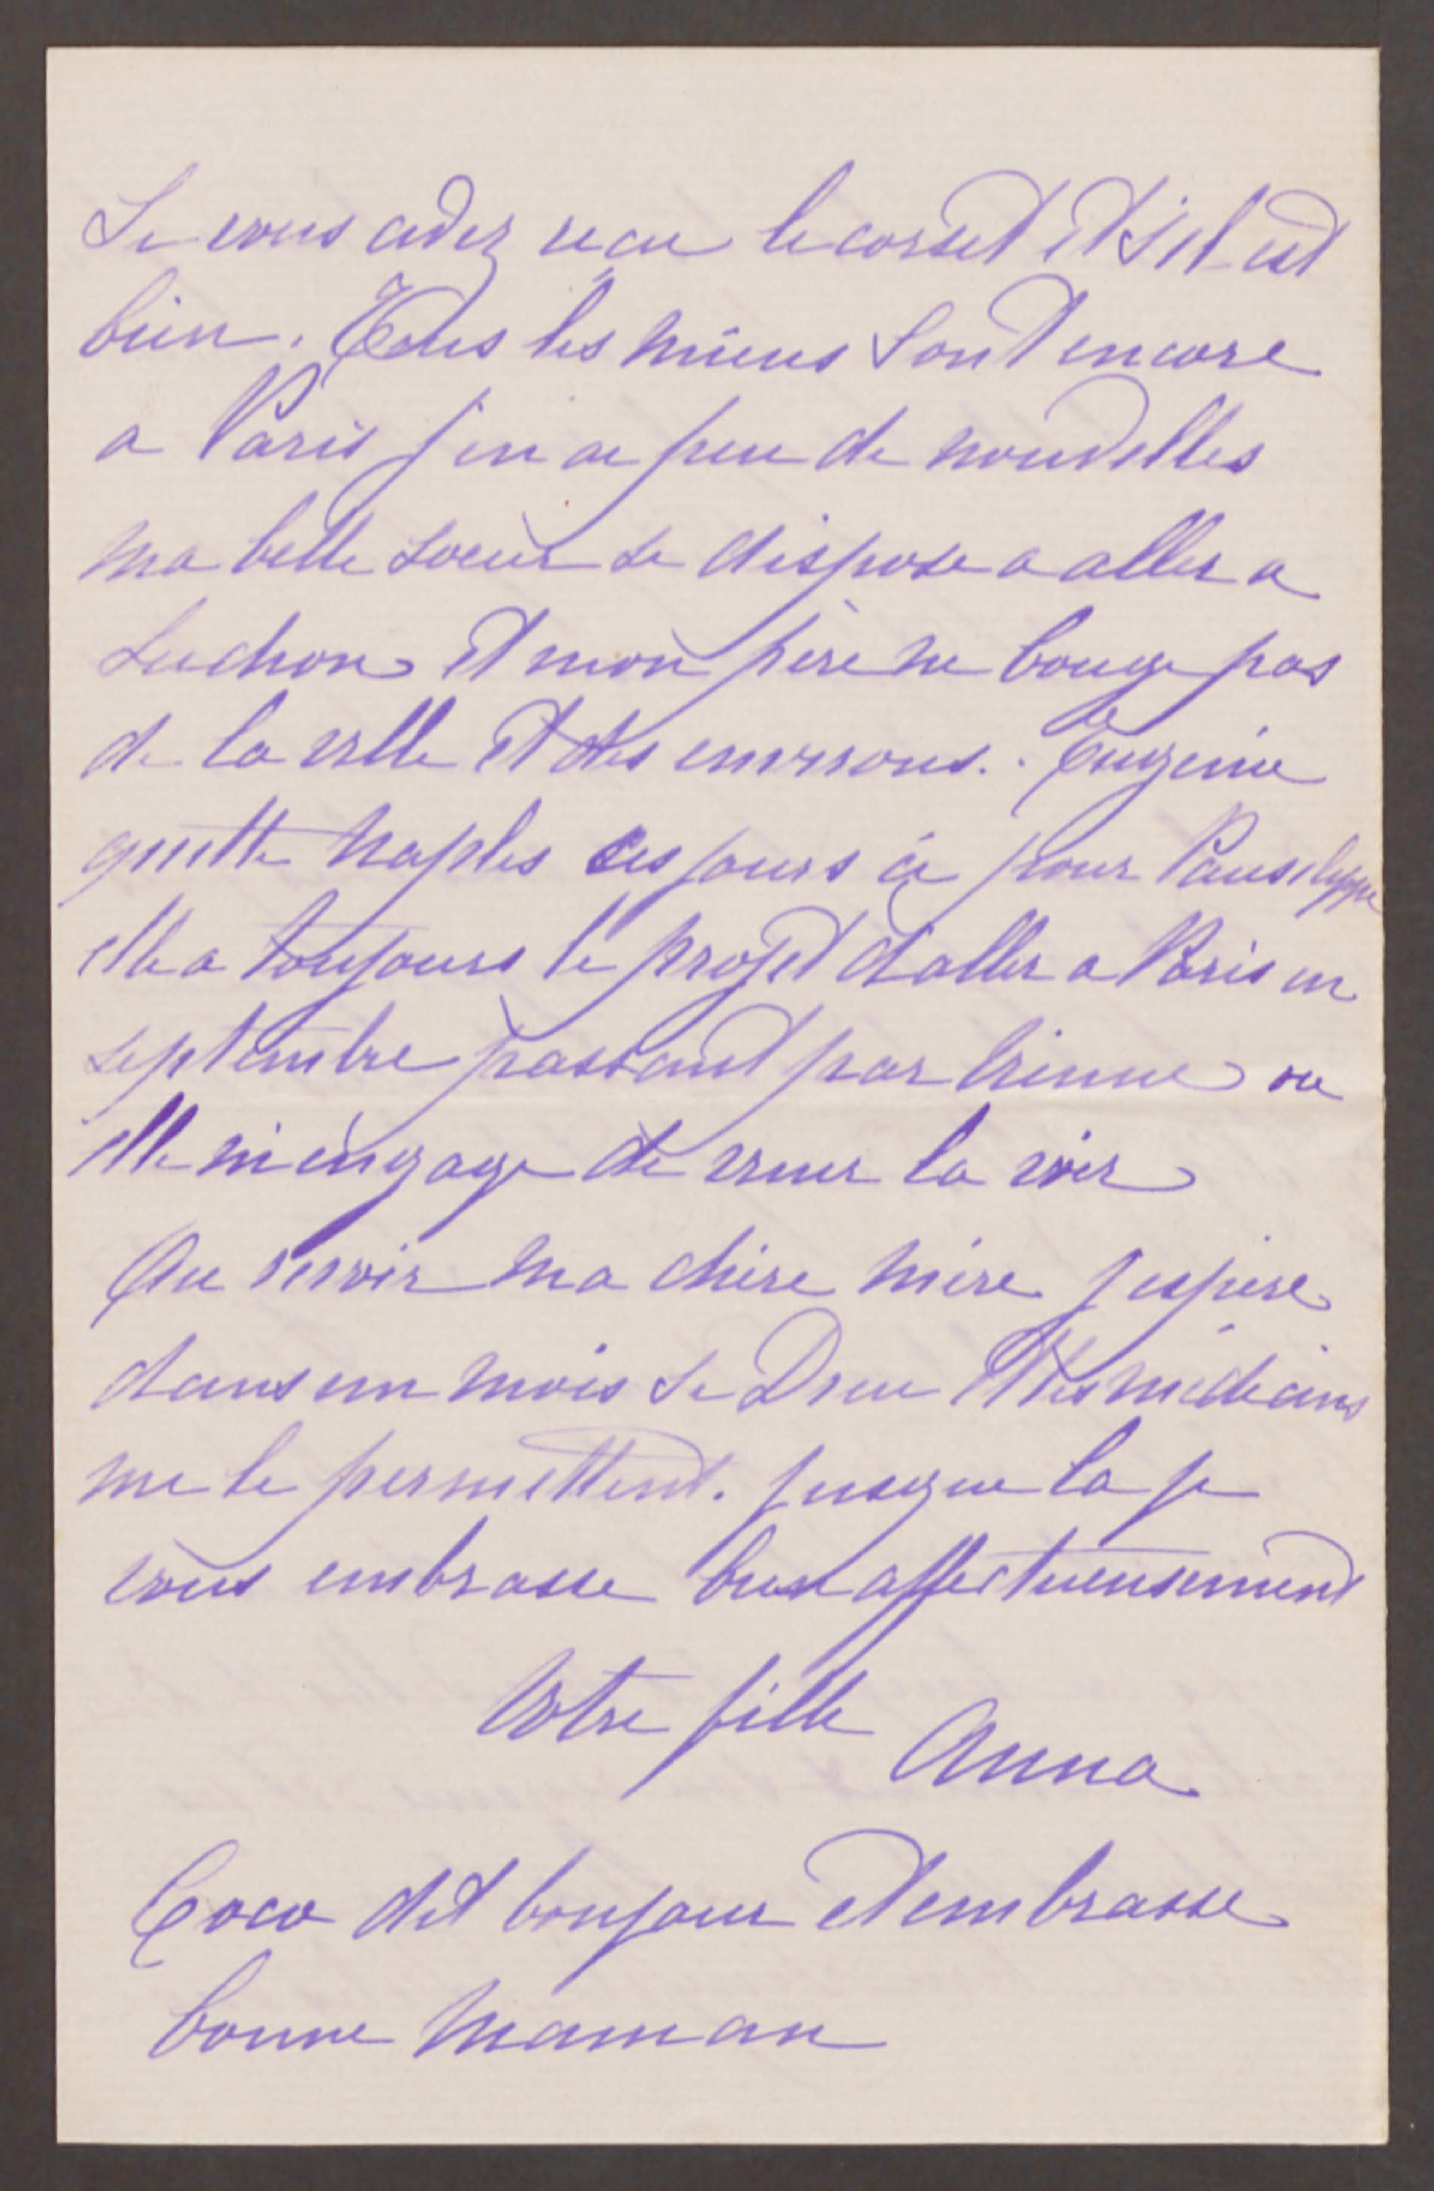 Si vous avez reçu le corset et s'il est
bien. Tous les miens sont encore
a Paris j'en ai peu de nouvelles
ma belle soeur se dispose a aller a
Luchon et mon père ne bouge pas
de la ville et des environs. . Eugenie
quitte Naples ces jours ci pour Pausilyppe
elle a toujours le projet d'aller a Paris en
septembre passant par Vienne ou
elle m'engage de venir la voir
Au revoir ma chère mère j'espère
dans un mois si Dieu et les médecins
me le permettent. jusque la je
vous embrasse bien affectueusement
Votre fille Anna
Coco dit bonjour et embrasse
bonne maman